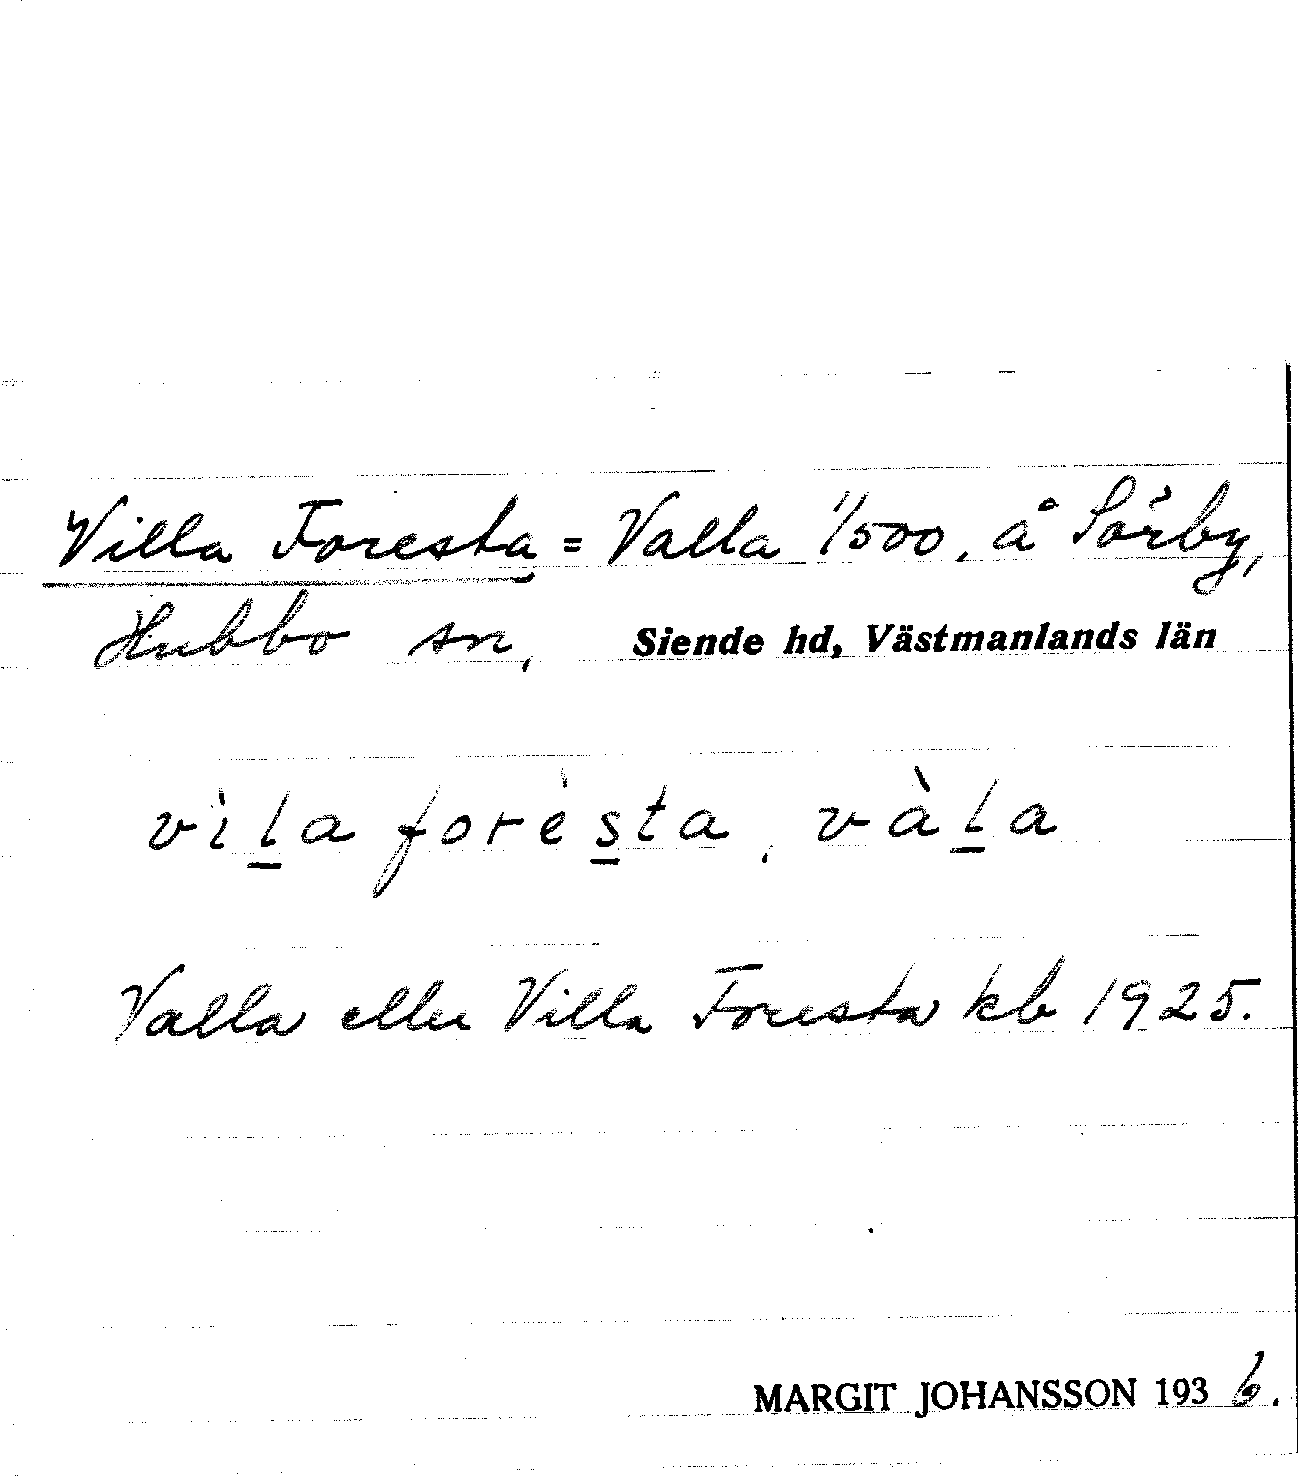 Villa Foresta = Valla 1/500, å Sörby,
Hubbo sn, Siende hd, Västmanlands län
vìl̲a forès̲ta, vàl̲a
Valla eller Villa Foresta kb 1925.
MARGIT JOHANSSON 1936.